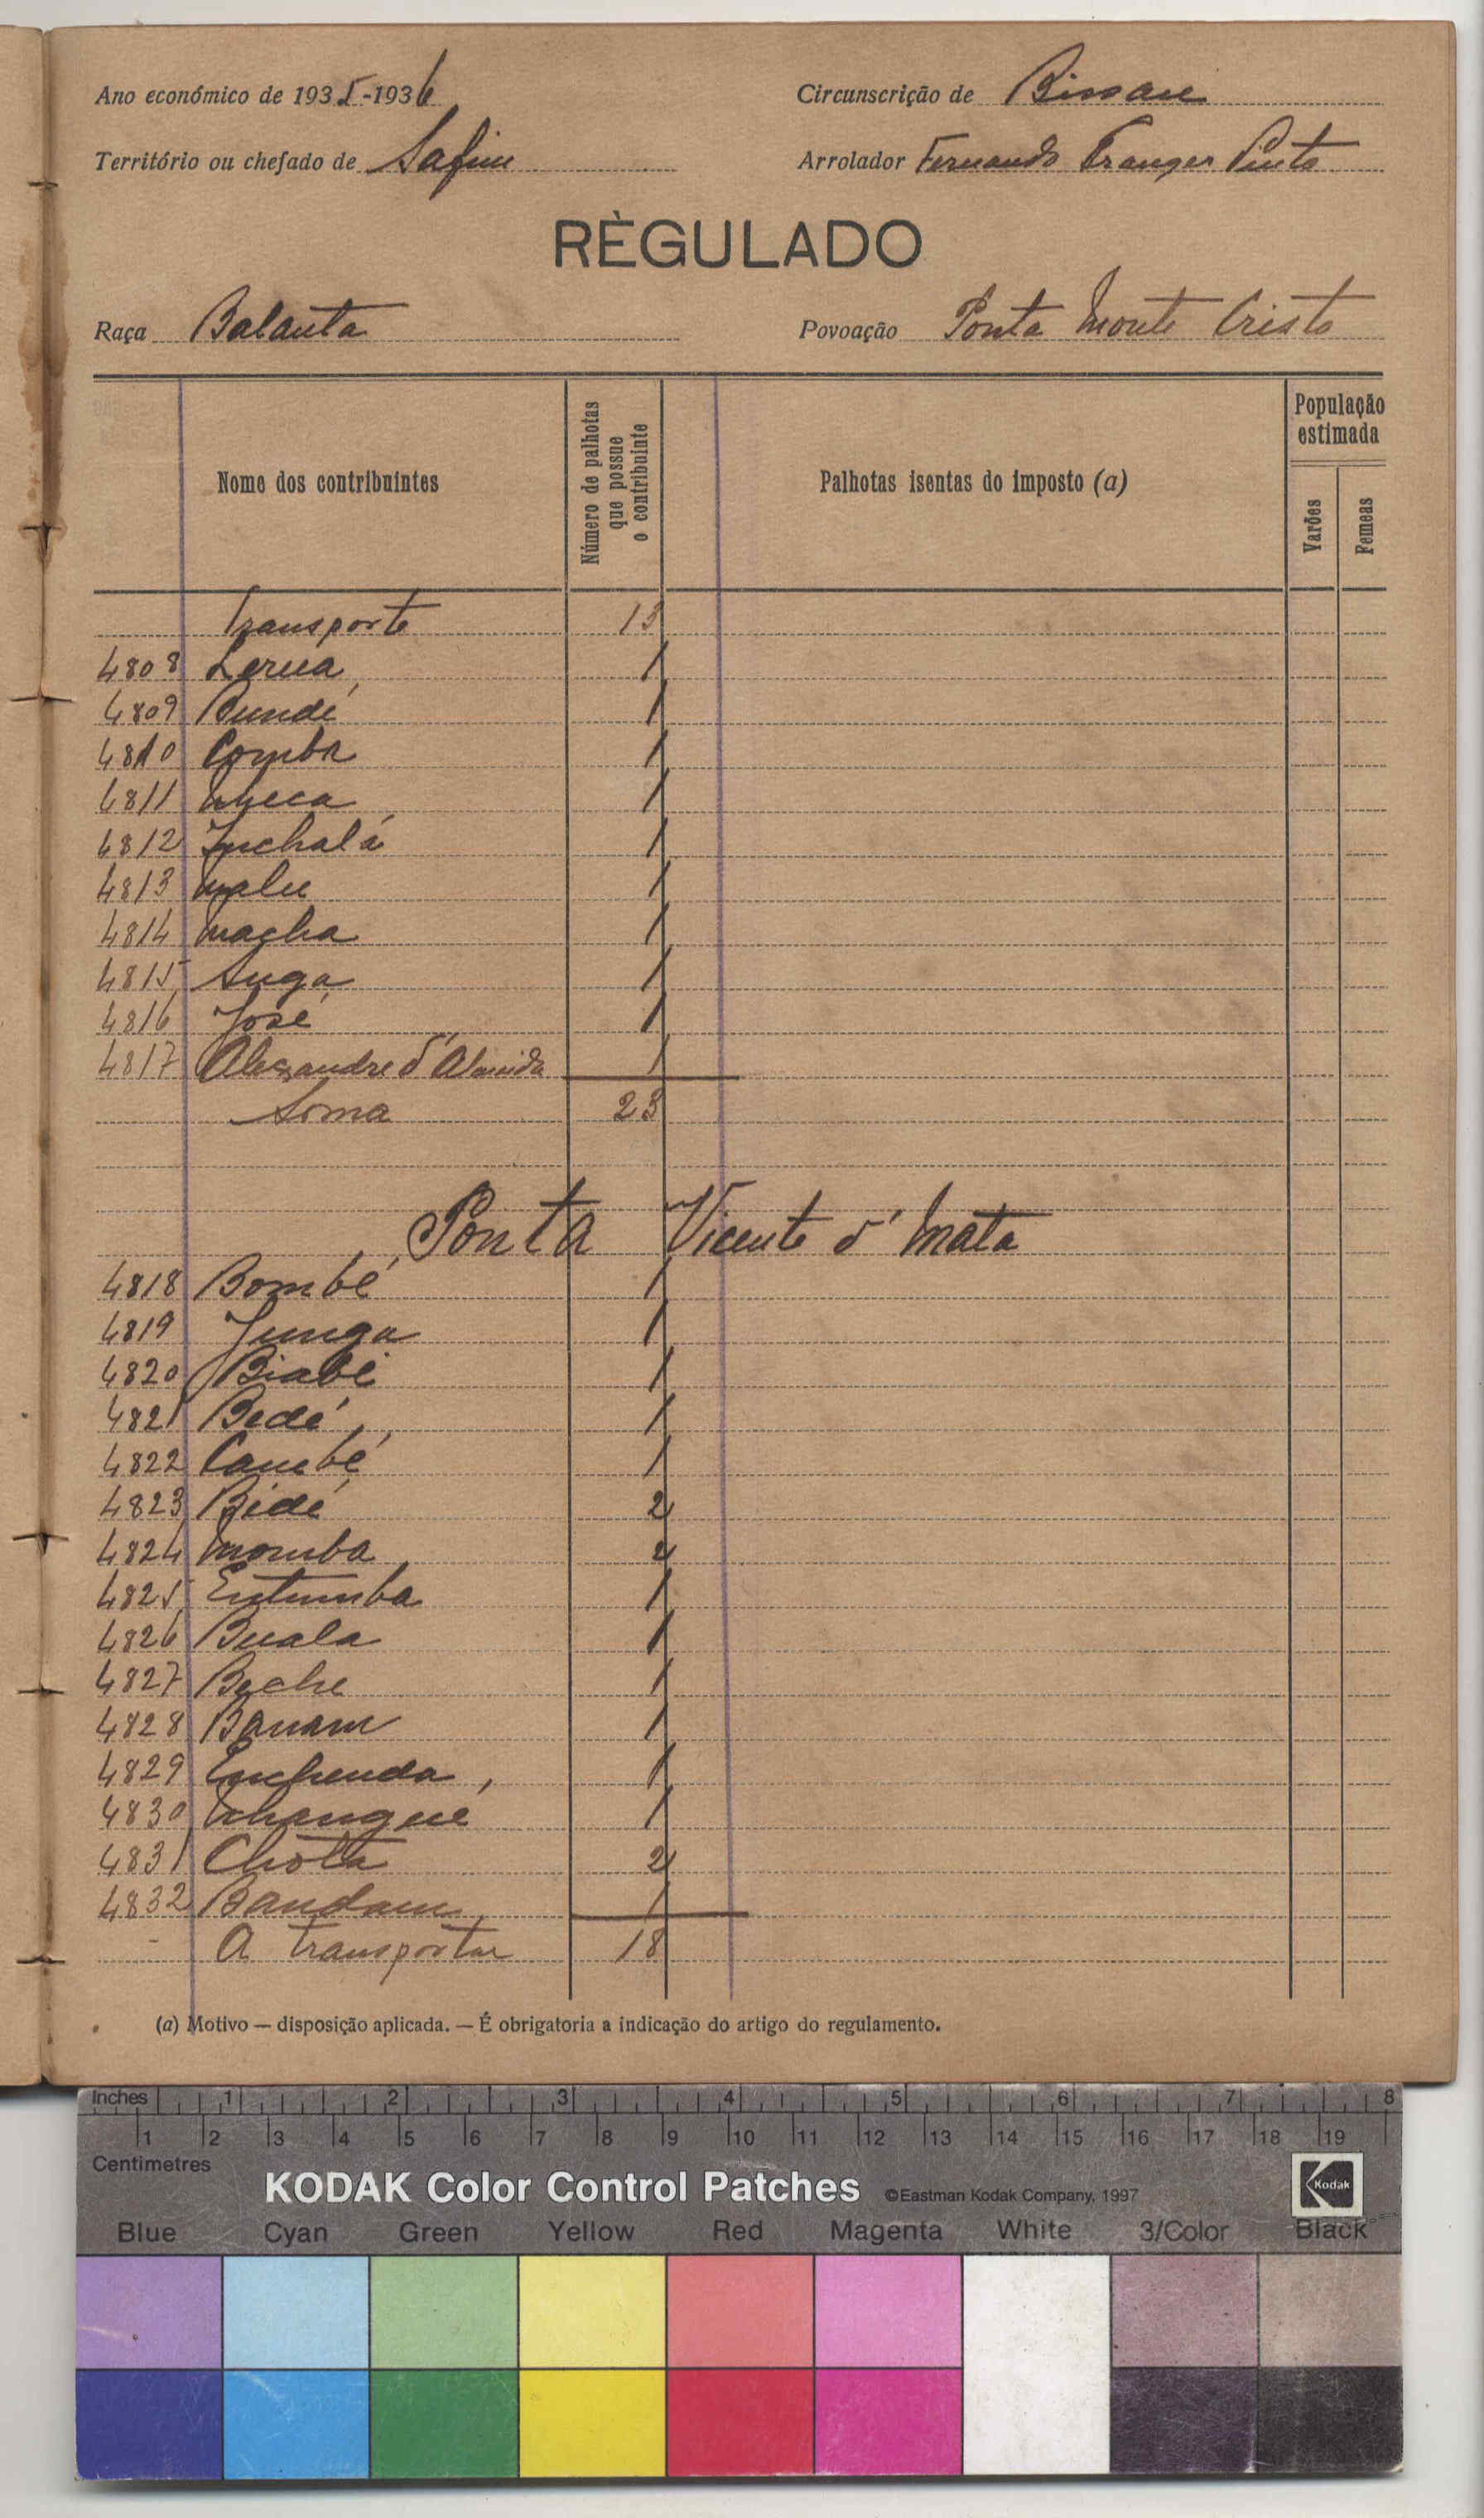 Ano económico de 1935-1936
Circunscrição de Bissau
Território ou chefado de Safim
Arrolador Fernando Pinto
RÈGULADO
Raça Balanta
Povoação Ponta Monte Cristo
Nome dos contribuintes
Número de palhotas que possue o contribuinte
Palhotas isentas do imposto (a)
População estimada
Varões
Femeas
Transporte 13
4808 Lerua 1
4809 Bundé 1
4810 Comba 1
4811 Meca 1
4812 Inchalá 1
4813 Malu 1
4814 Macha 1
4815 Suga 1
4816 José 1
4817 Alexandre d'Almeida 1
Soma 23
Ponta Vicente d'Mata
4818 Bombé 1
4819 Junga 1
4820 Biabé 1
4821 Bedé 1
4822 Cambé 1
4823 Bidé 2
4824 Momba 2
4825 Entumba 1
4826 Buala 1
4827 Beche 1
4828 Banam 1
4829 1
4830 1
4831 Chota 2
4832 Bandam 1
A transportar 18
(a) Motivo — disposição aplicada. — É obrigatoria a indicação do artigo do regulamento.
Inches 1 2 3 4 5 6 7 8
1 2 3 4 5 6 7 8 9 10 11 12 13 14 15 16 17 18 19
Centimetres
KODAK Color Control Patches ©Eastman Kodak Company, 1997 Kodak
Blue Cyan Green Yellow Red Magenta White 3/Color Black